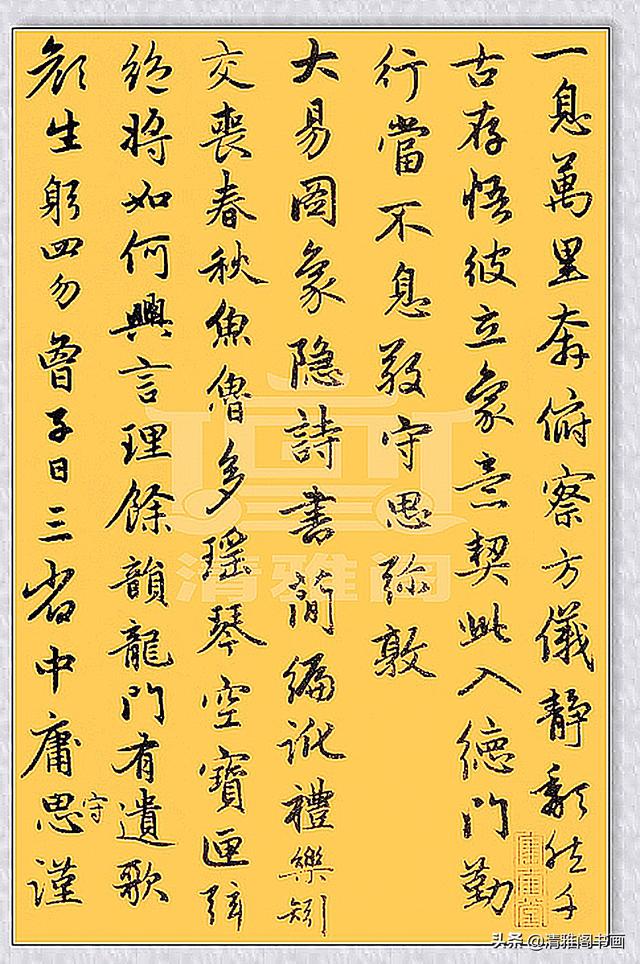 一息萬里奔俯察方儀靜頽然千
古存悟彼立象意契此入德門勤
行當不息敬守思弥敦
大易圖象隐詩書簡編訛禮樂矧
交喪春秋魚魯多瑶琴空寶匣弦
絶將如何興言理餘韻龍門有遺歌
顔生躬四勿曾子日三省中庸思謹
守
清雅阁
头条 @清雅阁书画